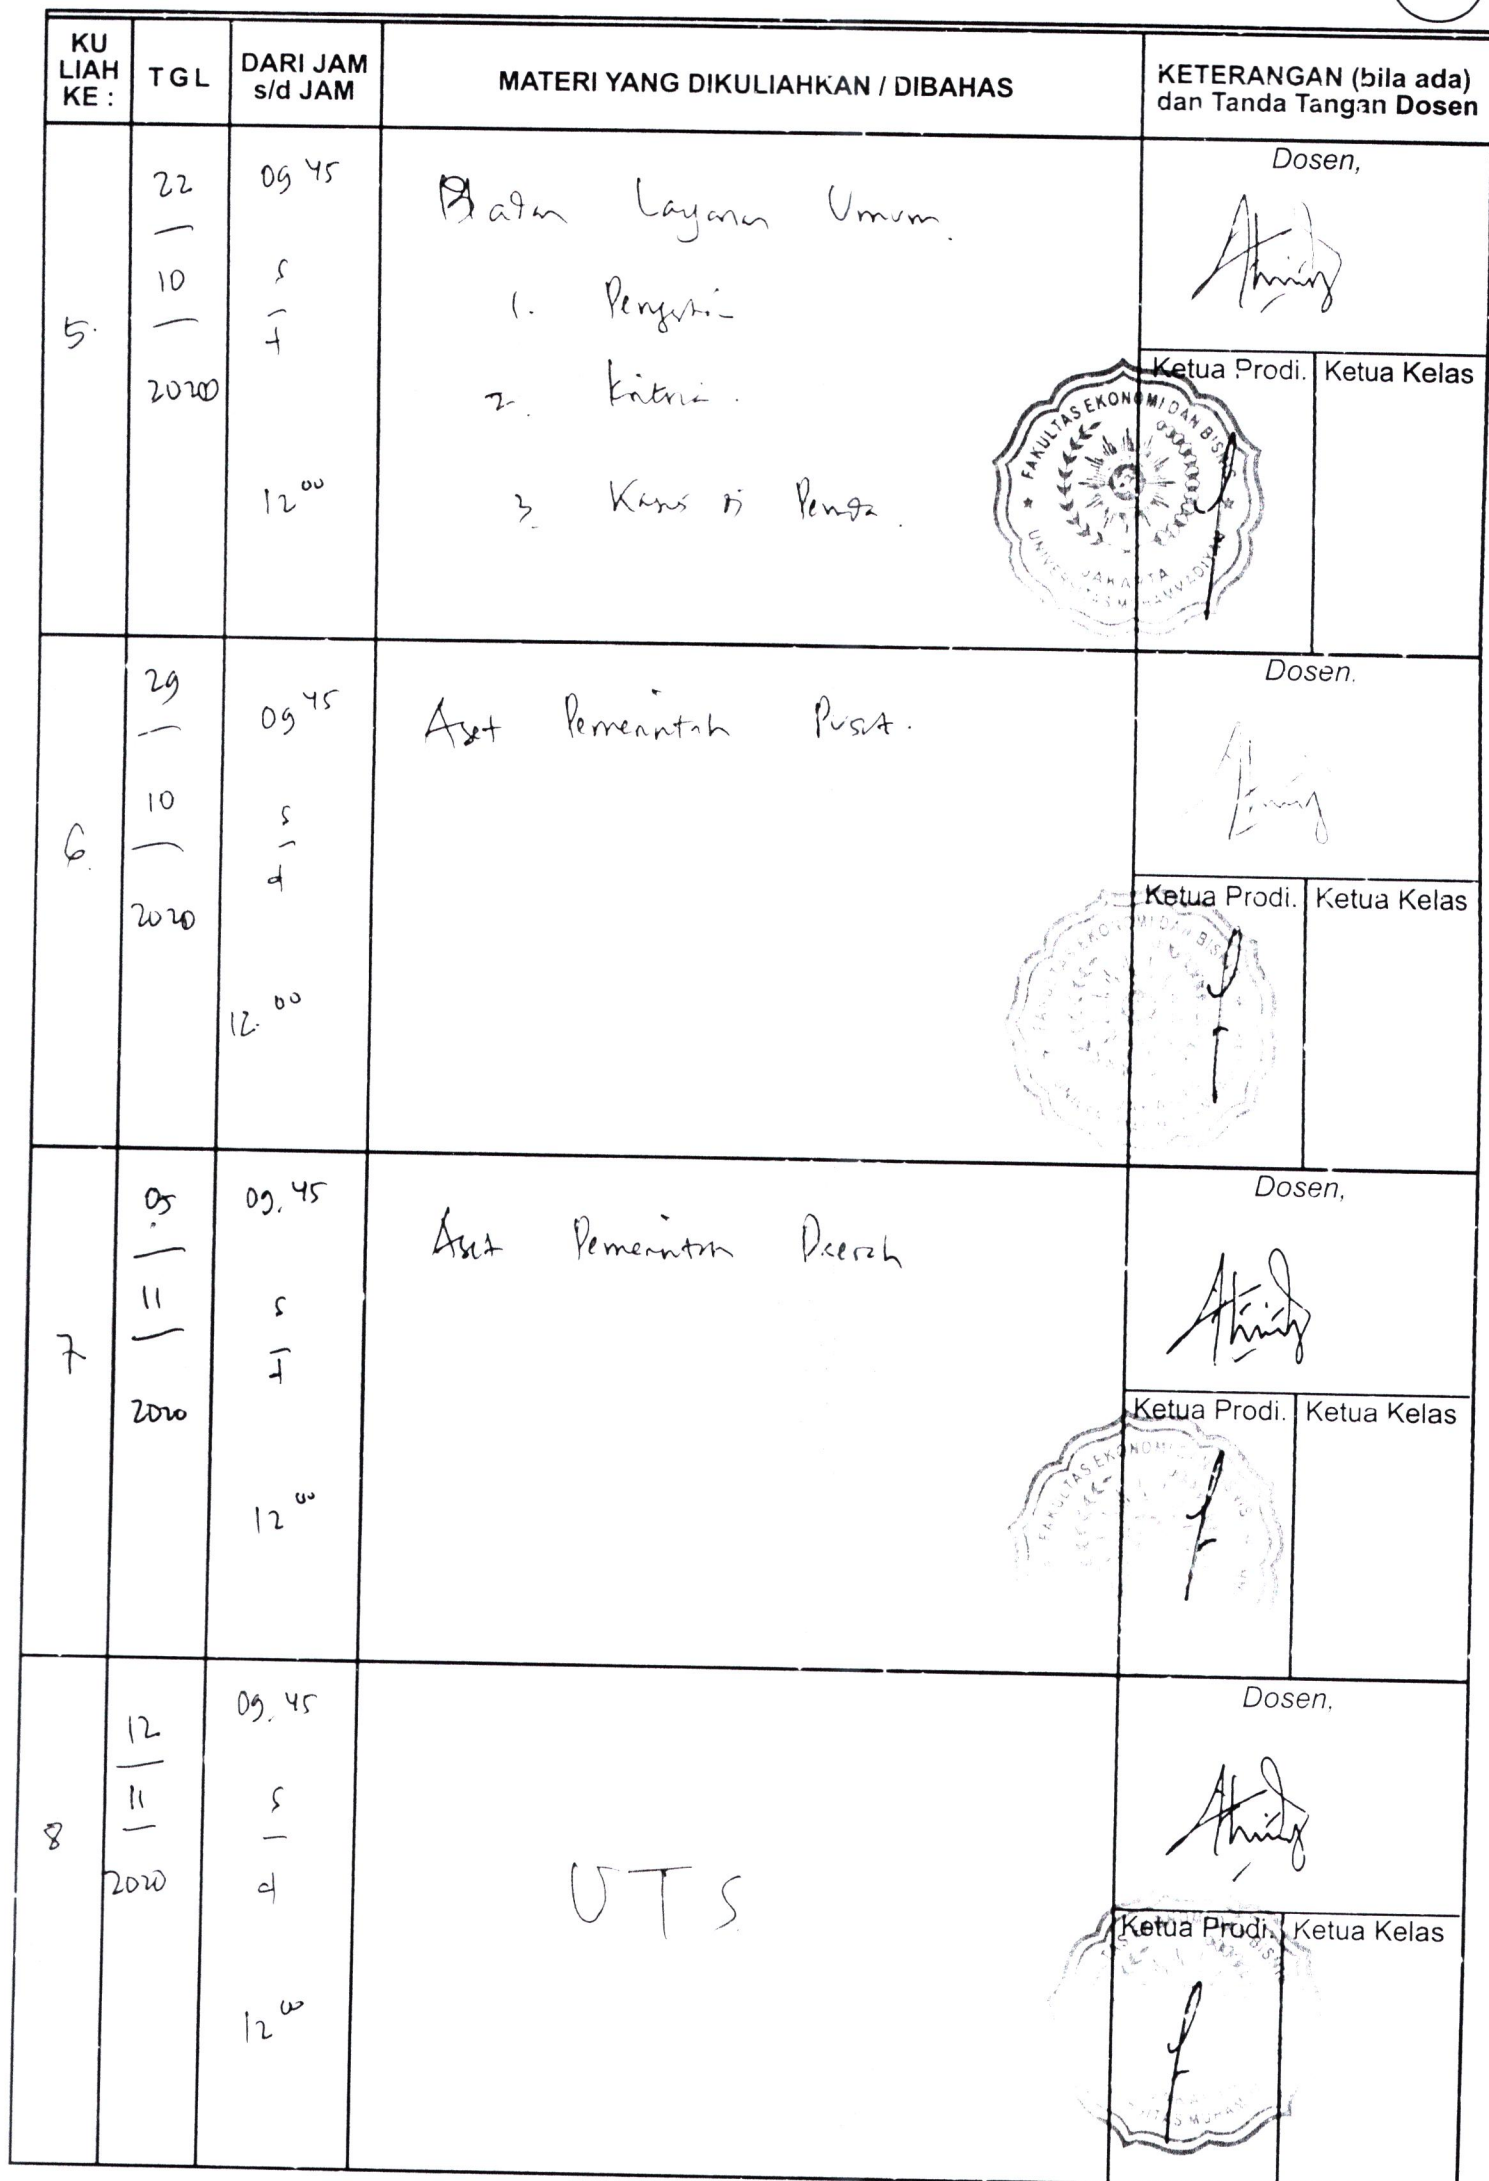 KU LIAH KE :
TGL
DARI JAM s/d JAM
MATERI YANG DIKULIAHKAN / DIBAHAS
KETERANGAN (bila ada) dan Tanda Tangan Dosen
5.
22
10
2020
09 45
s
d
12 00
Badan Layanan Umum.
1. Pengertian
2. Kriteria.
3. Kasus di Pemda.
Dosen,
Ketua Prodi.
Ketua Kelas
FAKULTAS EKONOMI DAN BISNIS
UNIVERSITAS MUHAMMADIYAH
JAKARTA
6.
29
10
2020
09 45
s
d
12.00
Aset Pemerintah Pusat.
Dosen.
Ketua Prodi.
Ketua Kelas
7
05
11
2020
09.45
s
d
12 00
Aset Pemerintah Daerah
Dosen,
Ketua Prodi.
Ketua Kelas
FAKULTAS EKONOMI
8
12
11
2020
09.45
s
d
12 00
UTS
Dosen,
Ketua Prodi.
Ketua Kelas